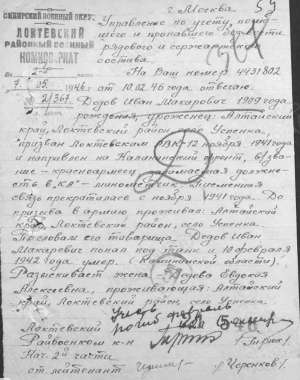 г. Москва
СИБИРСКИЙ ВОЕННЫЙ ОКРУГ
ЛОКТЕВСКИЙ
РАЙОННЫЙ ВОЕННЫЙ
КОМИССАРИАТ
Управление по учету погиб-
шего и пропавшего без вести
рядового и сержантского
состава.
На Ваш номер 4431802
от 10.02.46 отвечаю.
7. 05 1946 г.
2/367
Дедов Иван Макарович 1909 года
рождения, уроженец: Алтайский
край, Локтевский район, село Успенка,
призван Локтевским РВК 12 ноября 1941 года
и направлен на Калининский фронт, в/зва-
ние - красноармеец, долж-
ность - минометчик. Письменная
связь прекратилась с ноября 1941 года. До
призыва в армию проживал: Алтайский
край, Локтевский район, село Успенка.
По словам его товарища, Дедов Иван
Макарович попал под 10 февраля
1942 года, умер. (Калининской области).
Разыскивает жена Дедова Евдокия
Алексеевна, проживающая: Алтайский
край, Локтевский район, село Успенка.
Локтевский
Райвоенком к-н
Нач. 2 части
ст. лейтенант Черенков